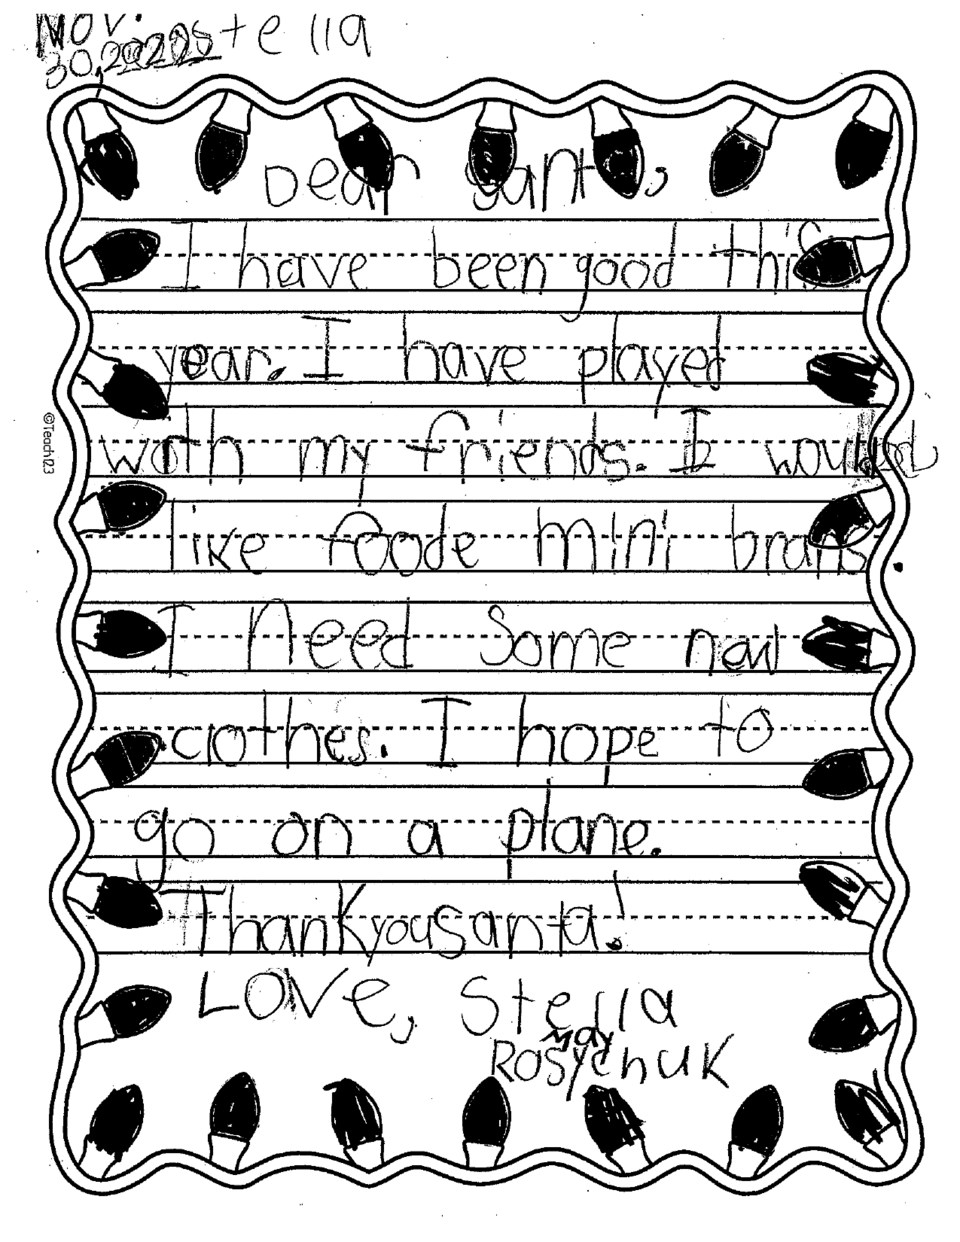 Nov. Stella
30,
Dear Santa,
I have been good this
year. I have played
with my friends. I would
like foode mini brans.
I Need Some new
clothes. I hope to
go on a plane.
Thank you Santa!
Love, Stella
May
Rosychuk
©Teach123